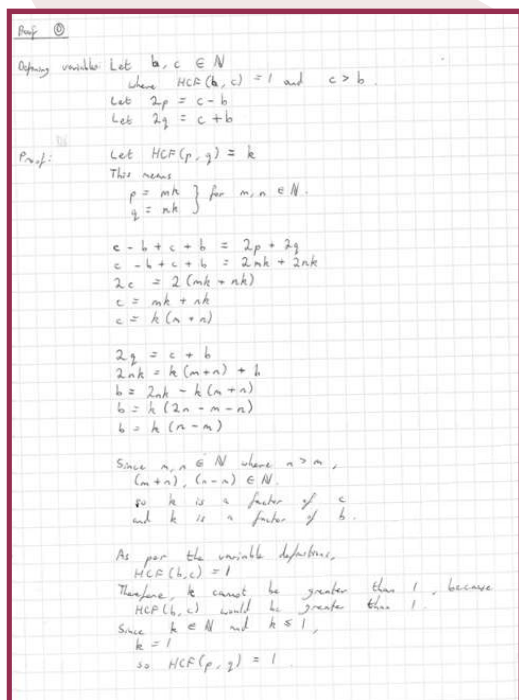 Proof ⓪
Defining variables Let b, c ∈ ℕ
where HCF(b, c) = 1 and c > b.
Let 2p = c - b
Let 2q = c + b
Proof: Let HCF(p, q) = k
This means
p = mk } for m, n ∈ ℕ.
q = nk
c - b + c + b = 2p + 2q
c - b + c + b = 2mk + 2nk
2c = 2(mk + nk)
c = mk + nk
c = k(m + n)
2q = c + b
2nk = k(m+n) + b
b = 2nk - k(m+n)
b = k(2n - m - n)
b = k(n - m)
Since m, n ∈ ℕ where n > m,
(m+n), (n-m) ∈ ℕ.
so k is a factor of c
and k is a factor of b.
As per the variable definitions,
HCF(b,c) = 1
Therefore, k cannot be greater than 1, because
HCF(b,c) would be greater than 1.
Since k ∈ ℕ and k ≤ 1,
k = 1
so HCF(p, q) = 1.